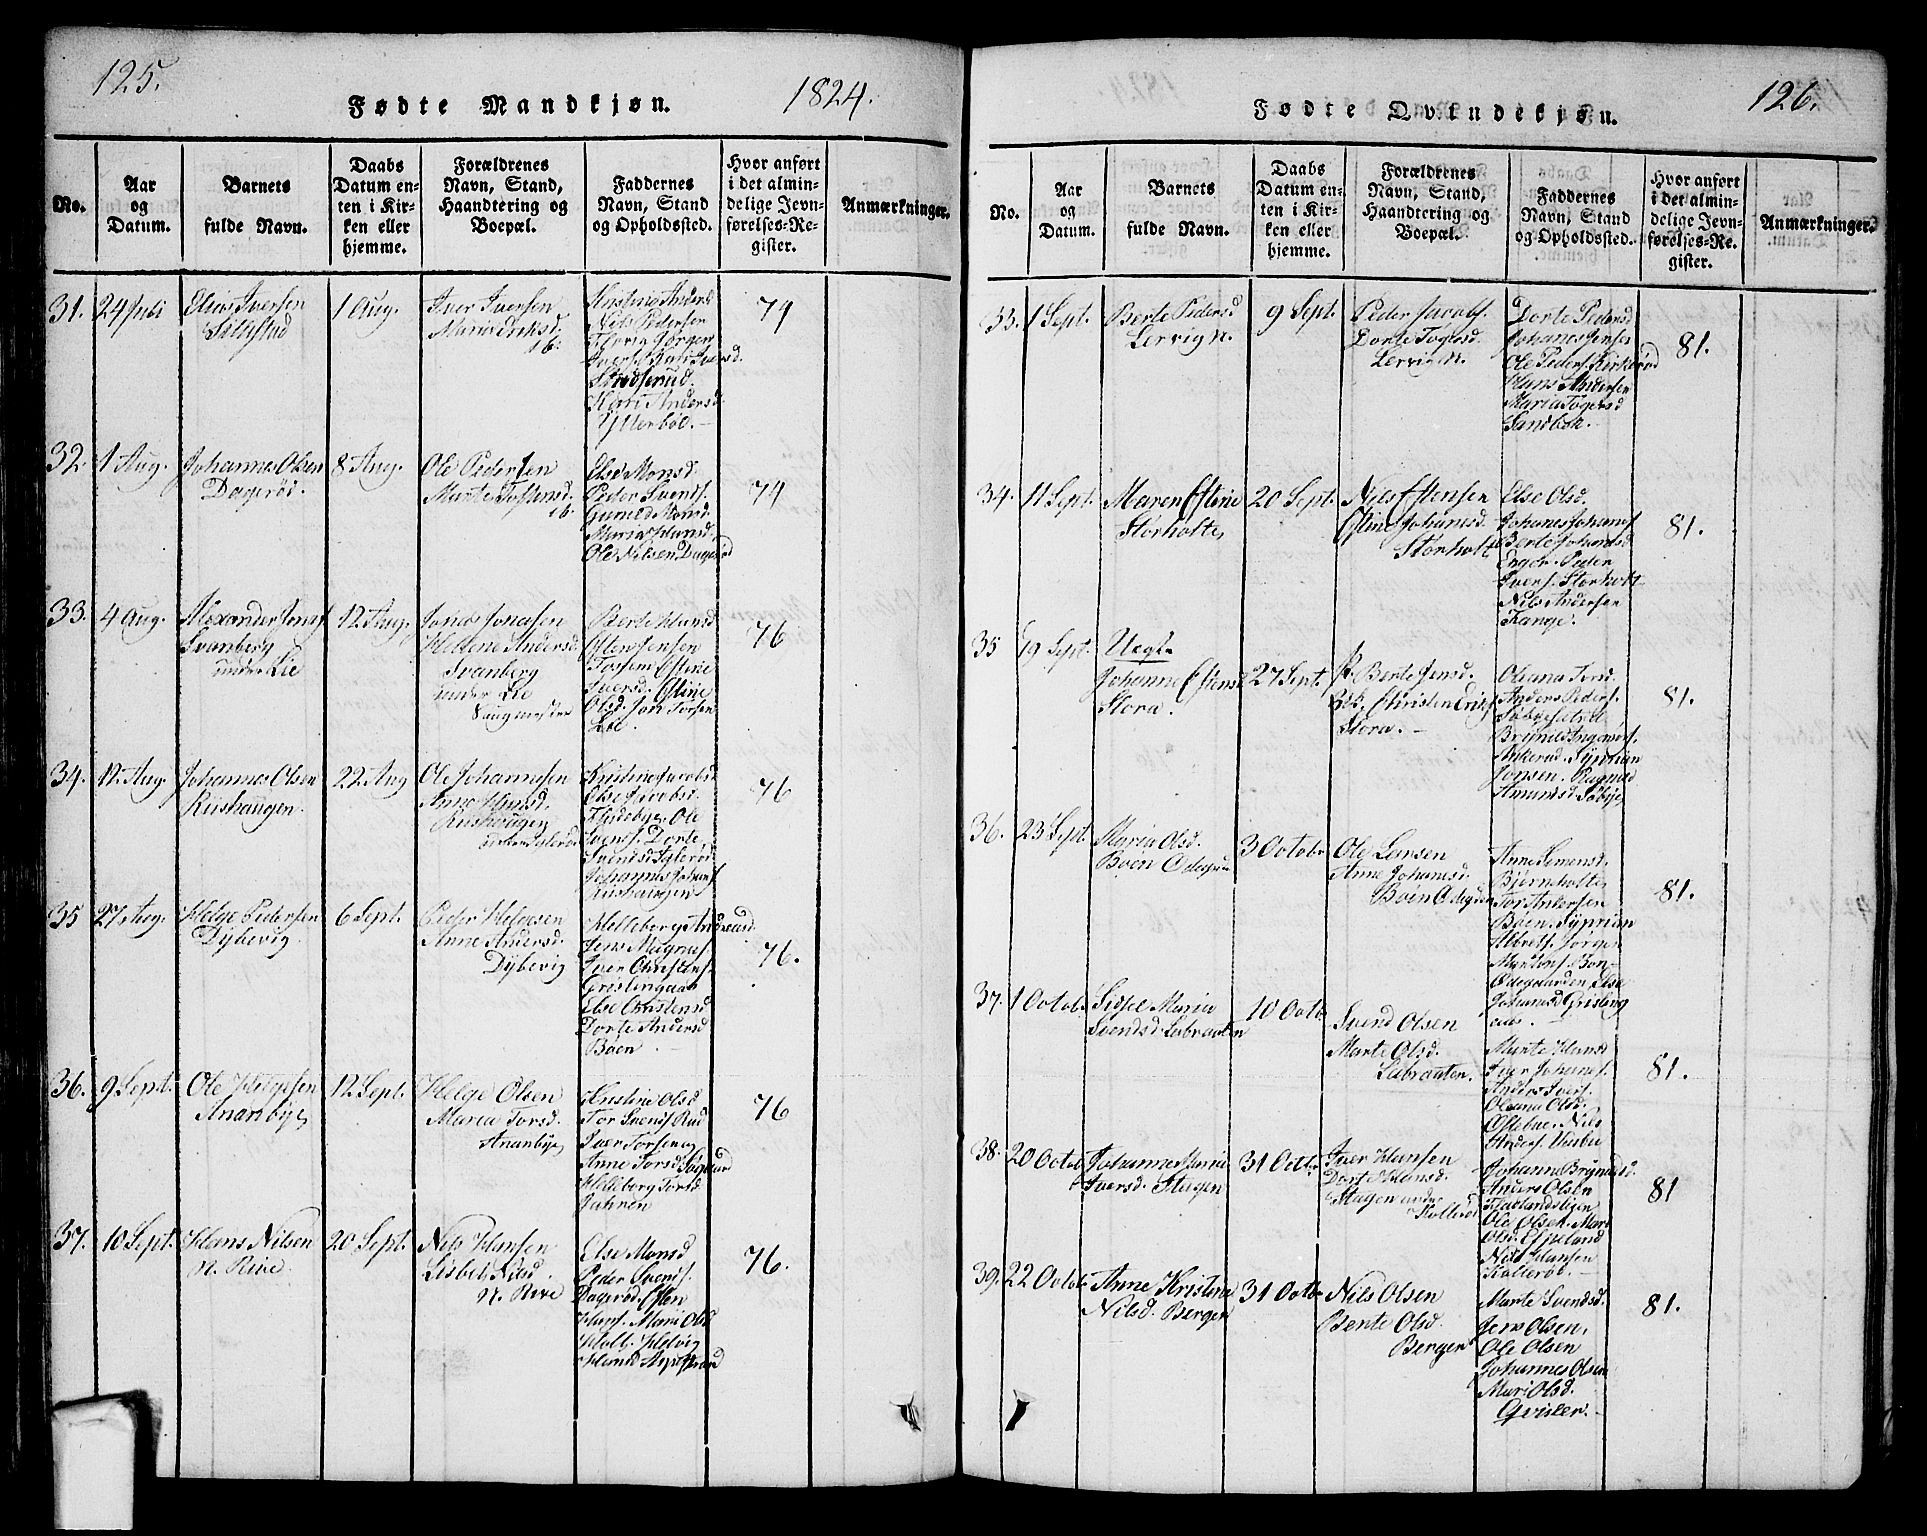 125.
Fødte Mandkjøn.
1824.
No.
Aar
og
Datum.
Barnets
fulde Navn.
Daabs
Datum en-
ten i Kir-
ken eller
hjemme.
Forældrenes
Navn, Stand,
Haandtering og
Boepæl.
Faddernes
Navn, Stand
og Opholdssted.
Hvor anført
i det almin-
delige Jevn-
førelses-Re-
gister.
Anmærkninger.
31.
24 Juli
Elias Iversen
1 Aug.
Iver Iversen
Maria
ib.
Nils Pedersen
Kari Andersd.
Ytterbød.
79
32.
1 Aug.
Johannes Olsen
Dagerød.
8 Aug.
Ole Pedersen
Marte Tostensd.
ib.
Else Monsd.
Peder Svends.
Gunild Monsd.
Maria Hansd.
Ole Nilsen Dagerød
74
33.
4 Aug.
Alexander Jonas
Svanberg
under Lie
12 Aug.
Jonas Jonasen
Hellene Andersd.
Svanberg
under Lie
Berte Hansd
Esten Jensen
Torsem Estine
Iversd. Estine
Olsd. Jon Torsen
Lie.
76
34.
12. Aug.
Johannes Olsen
Riishaugen.
22 Aug
Ole Johannesen
Anne Hansd.
Riishaugen
under Iglerød
Kristine Jacobsd.
Else Jacobsd.
Ole
Svends. Dorte
Svendsd Iglerød
Johannes Johans.
Riishaugen
76
35
27 Aug.
Helge Pedersen
Dybevig.
6 Sept.
Peder Helgesen
Anne Andersd.
Dybevig
Helleborg Andreasd.
Jens Magnus.
Iver Christens.
Gristingaas
Else Christensd
Dorte Andersd
Böen.
76.
36.
9 Sept.
Ole Helgesen
Ananbye
12 Sept.
Helge Olsen
Maria Torsd.
Ananbye
Kristine Olsd
Tor Svends Rud
Iver Torsen og
Anne Torsd
Helleborg Torsd
Jahren
76
37.
10 Sept.
Hans Nilsen
N. Rive.
20 Sept.
Nils Hansen
Lisbet Nilsd.
N. Rive
Else Monsd
Peder Svends.
Dagerød. Esten
Hans. Mari Olsd
Helvig
76.
126.
Fødte Qvindekjøn.
No.
Aar
og
Datum.
Barnets
fulde Navn.
Daabs
Datum en-
ten i Kir-
ken eller
hjemme.
Forældrenes
Navn, Stand,
Haandtering og
Boepæl.
Faddernes
Navn, Stand
og Opholdssted.
Hvor anført
i det almin-
delige Jevn-
førelses-Re-
gister.
Anmærkninger.
33.
1 Sept.
Berte Pedersd
Lervig N.
9 Sept.
Peder Jacobs.
Dorte Togersd.
Lervig N.
Dorte Pedersd
Johanes Jensen
Ole Peders. Kirkerød
Hans Andersen
Maria Togersd
Sandbek.
81.
34.
11 Sept.
Maren Estine
Storholte
20 Sept.
Nils Estensen
Estine Johansd.
Storholt
Else Olsd.
Johanes Johans.
Berte Johansd
Enger. Peder
Ivers. Storholt
Nils Andersen
Kange.
81.
35
19 Sept.
Uegte
Johanne Estensd
Stora.
27 Sept.
P. Berte Jensd.
Christen Erics.
Stora.
Oleana Torsd.
Anders Peders.
Brynild Ingvars.
Ankerud. Syprian
Jonsen. Ragnild
Amundsd. Søbye
81.
36.
23 Sept.
Maria Olsd.
Boen Ødegaard
3 Octobr
Ole Larsen
Anne Johansd.
Böen Ødegaard
Anne Simensd.
Bjørnholte
Tor Andersen
Böen. Syprian
Albrets. Jørgen
Martens. Bön
Ødegaarden Else
Johansd Grisling
aas.
81.
37.
1 Octobr
Sidsel Maria
Svendsd. Labraaten
10 Octbr
Svend Olsen
Marte Olsd.
Labraaten.
Marte Hansd
Iver Johans.
Anders Ivers.
Oleana Olsd.
Østebøe. Nils
Anders. Huseby
81.
38.
20 Octobr
Johanne Maria
Iversd. Stagen
31 Octbr
Iver Hansen
Dort Hansd.
Stagen under
Kollerød
Johanne Brynilsd.
Anders Olsen
Ole Olsen. Mari
Olsd. Espeland
Nils Hansen
Kollerød.
81
39.
22 Octobr
Anne Kristine
Nilsd. Bergen
31 Octbr
Nils Olsen
Bente Olsd.
Bergen
Marte Svendsd.
Jens Olsen.
Ole Olsen
Johannes Olsen
Mari Olsd.
Qvisler.
81.